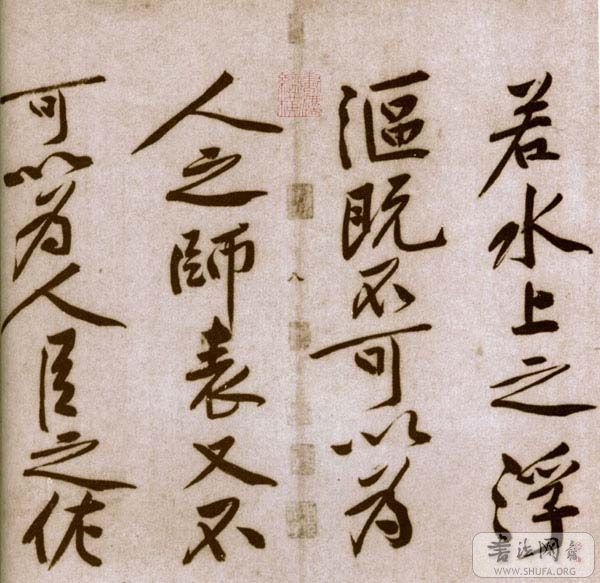 若水上之浮
漚既不可以為
人之師表又不
可以為人臣之佐
八
书法网
WWW.SHUFA.ORG